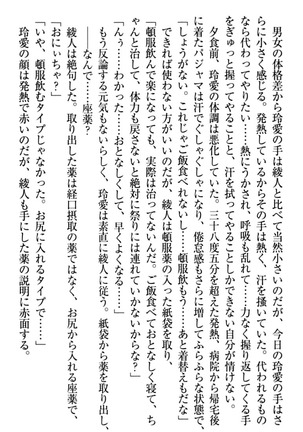 男女の体格差から玲愛の手は綾人と比べて当然小さいのだが、今日の玲愛の手はさ
らに小さく感じる。発熱しているからその手は熱く、汗を掻いていた。代われるもの
なら代わってやりたい……熱にうかされ、呼吸も乱れて……力なく握り返してくる手
をぎゅっと握ってやることと、汗を拭ってやることしかできない自分が情けない。
夕食前、玲愛の体調は悪化していた。三十八度五分を超えた発熱、病院から帰宅後
に着たパジャマは汗でぐしゃぐしゃになり、倦怠感もさらに増してふらふらな状態で、
「しょうがない。これじゃご飯食べれないし……頓服飲もう……あと着替えもだな」
できれば使わない方がいいのだが、綾人は頓服薬の入った紙袋を取り、
「頓服飲んで楽になっても、実際は治ってないんだ。ご飯食べておとなしく寝て、ち
ゃんと治して、体力も戻さないと絶対に祭りには連れていかないからな?」
「んぅ……わかった……おとなしくして、早くよくなる……」
もう反論する元気もないらしく、玲愛は素直に綾人に従う。紙袋から薬を取り出し、
「――なんで……座薬?」
綾人は絶句した。取り出した薬は経口摂取の薬ではなく、お尻から入れる座薬で、
「おにぃちゃ?」
「いや、頓服飲むタイプじゃなかった。お尻に入れるタイプで……」
玲愛の顔は発熱で赤いのだが、綾人も手にした薬の説明に赤面する。